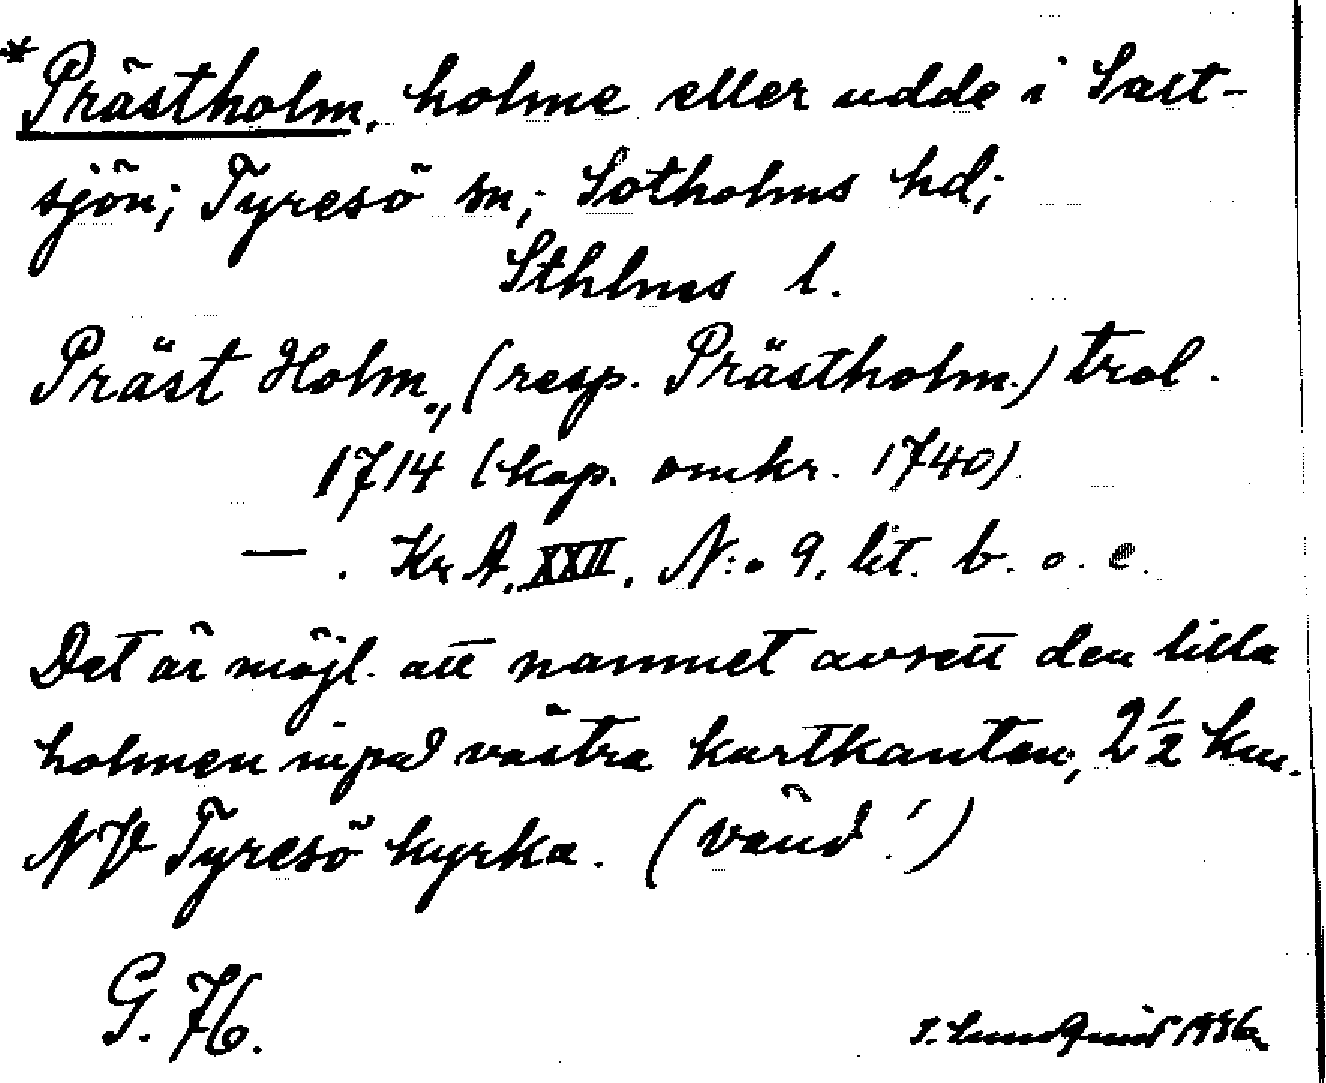 *Prästholm, holme eller udde i Salt-
sjön; Tyresö sn; Sotholms hd;
Sthlms l.
Präst Holm., (resp. Prästholm.) trol.
1714 (kop. omkr. 1740).
— . Kr A. XXII. N:o 9. lit. b. o. c.
Det är möjl. att namnet avsett den lilla
holmen inpå västra kartkanten, 2½ km.
NV Tyresö kyrka. (vänd!)
G. 76.
Lundqvist